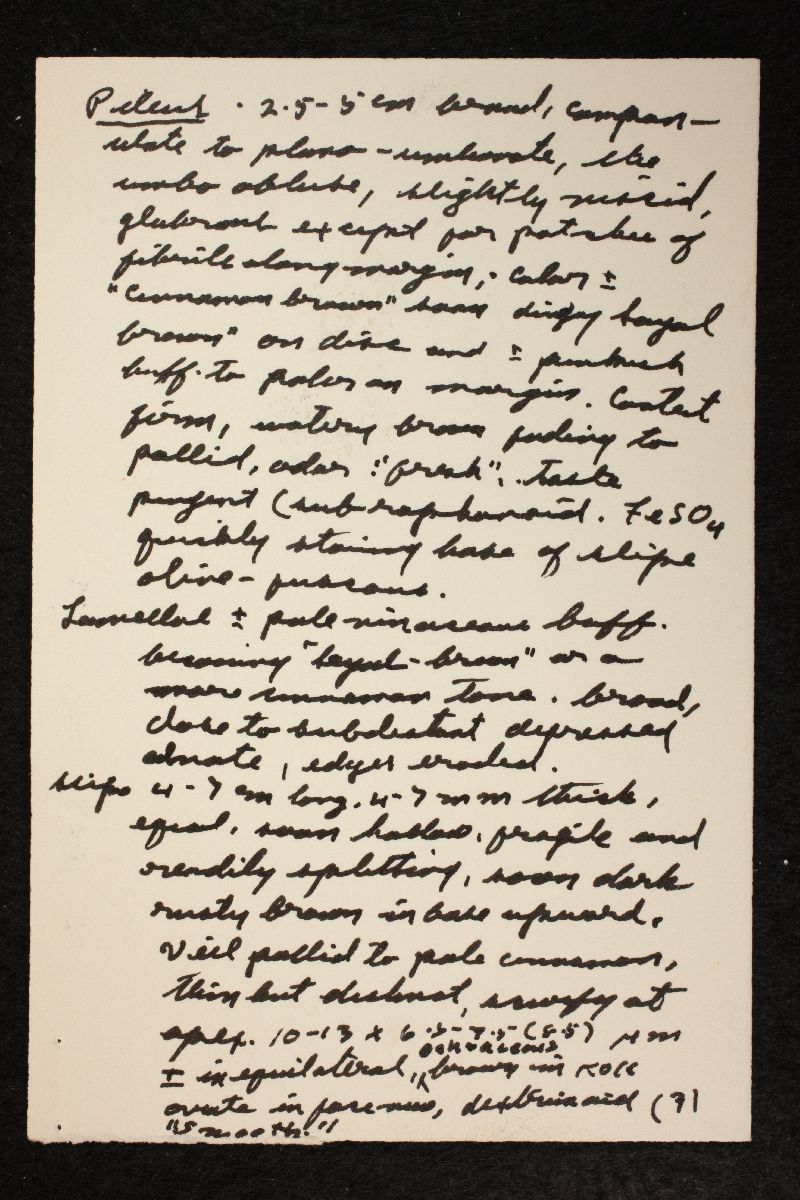 Pileus . 2.5-5 cm broad, campan-
ulate to plano-umbonate, the
umbo obtuse, slightly viscid,
glabrous except for patches of
fibrils along margin, . color ±
"cinnamon brown" soon dingy bayal
brown" on disc and ± pinkish
buff. to paler on margin. Context
firm, watery brown fading to
pallid, odor "fresh", taste
pungent (subraphanoid. FeSO4
quickly staining base of stipe
olive-fuscous.
Lamellae ± pale vinaceous buff.
becoming "bayal-brown" or a
more cinnamon tone. broad,
close to subdistant depressed
adnate, edges eroded.
stipe 4-7 cm long, 4-7 mm thick,
equal, soon hollow, fragile and
readily splitting, soon dark
rusty brown in base upward.
Veil pallid to pale cinnamon,
thin but distinct, scurfy at
apex. 10-13 x 6.5-7.5 (8.5) µm
± inequilateral, ochraceous brown in KOH
ovate in face-view, dextrinoid (?)
"smooth."